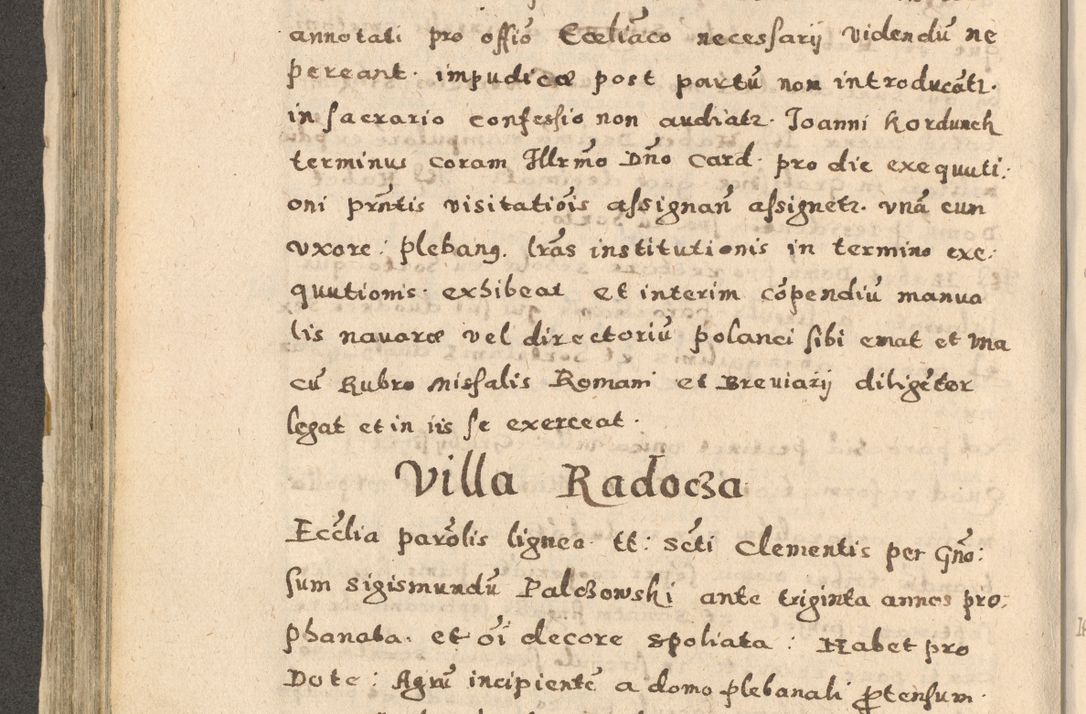 annotati pro offõ Ecclĩaco necessarij videndũ ne
pereant. impudicæ post partũ non introducãtr.
in sacrario confessio non audiatr. Joanni Kordunek
terminus coram Illrmo Dño Card. pro die exequuti:
oni prñtis visitatiõis assignañ assignetr. vnã cum
vxore: plebang. lrãs institutionis in termino exe:
quutionis. exhibeat et interim cõpendiũ manua
lis nauaræ vel directoriũ polanci sibi emat et vna
cũ Rubro Missalis Romani et Breuiarij diligẽter
legat et in iis se exerceat.
Villa Radocza
Ecc̃lia parõlis lignea tt: Scti Clementis per Gño:
sum Sigismundũ Palczowski ante triginta annos pro:
phanata. et oĩ decore spoliata: Habet pro
Dote: Agrũ incipientẽ a domo plebanali ꝓtensum.